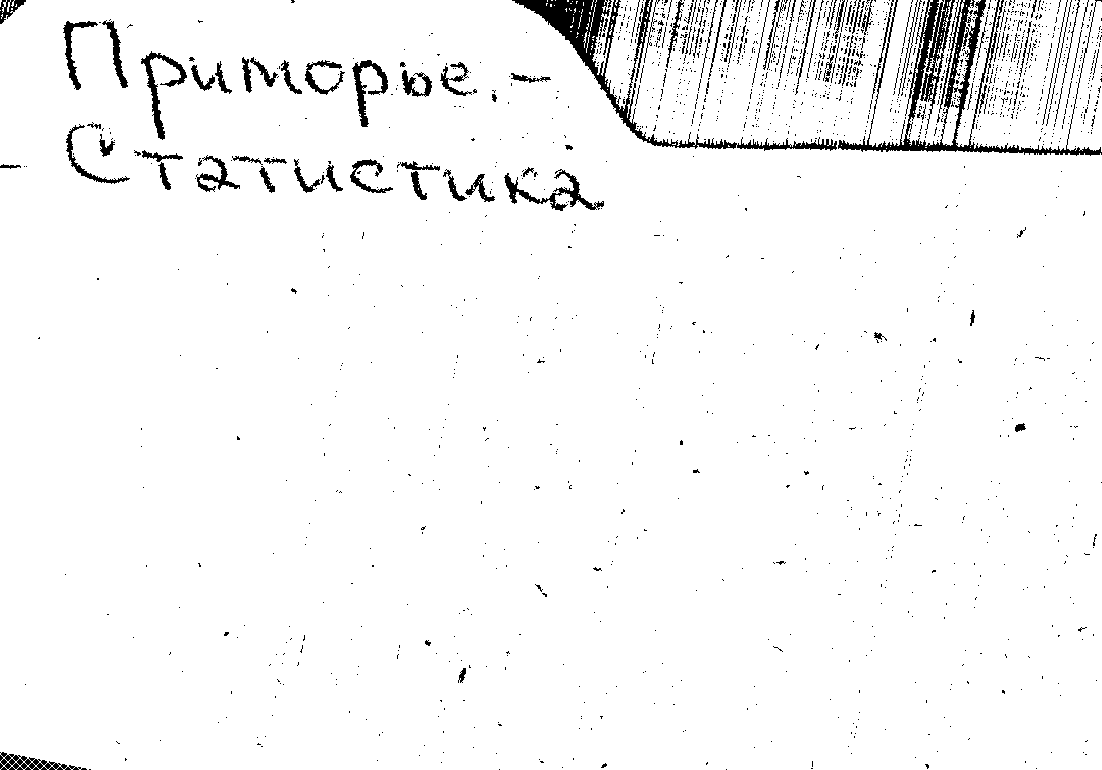 Приморье. –
– Статистика